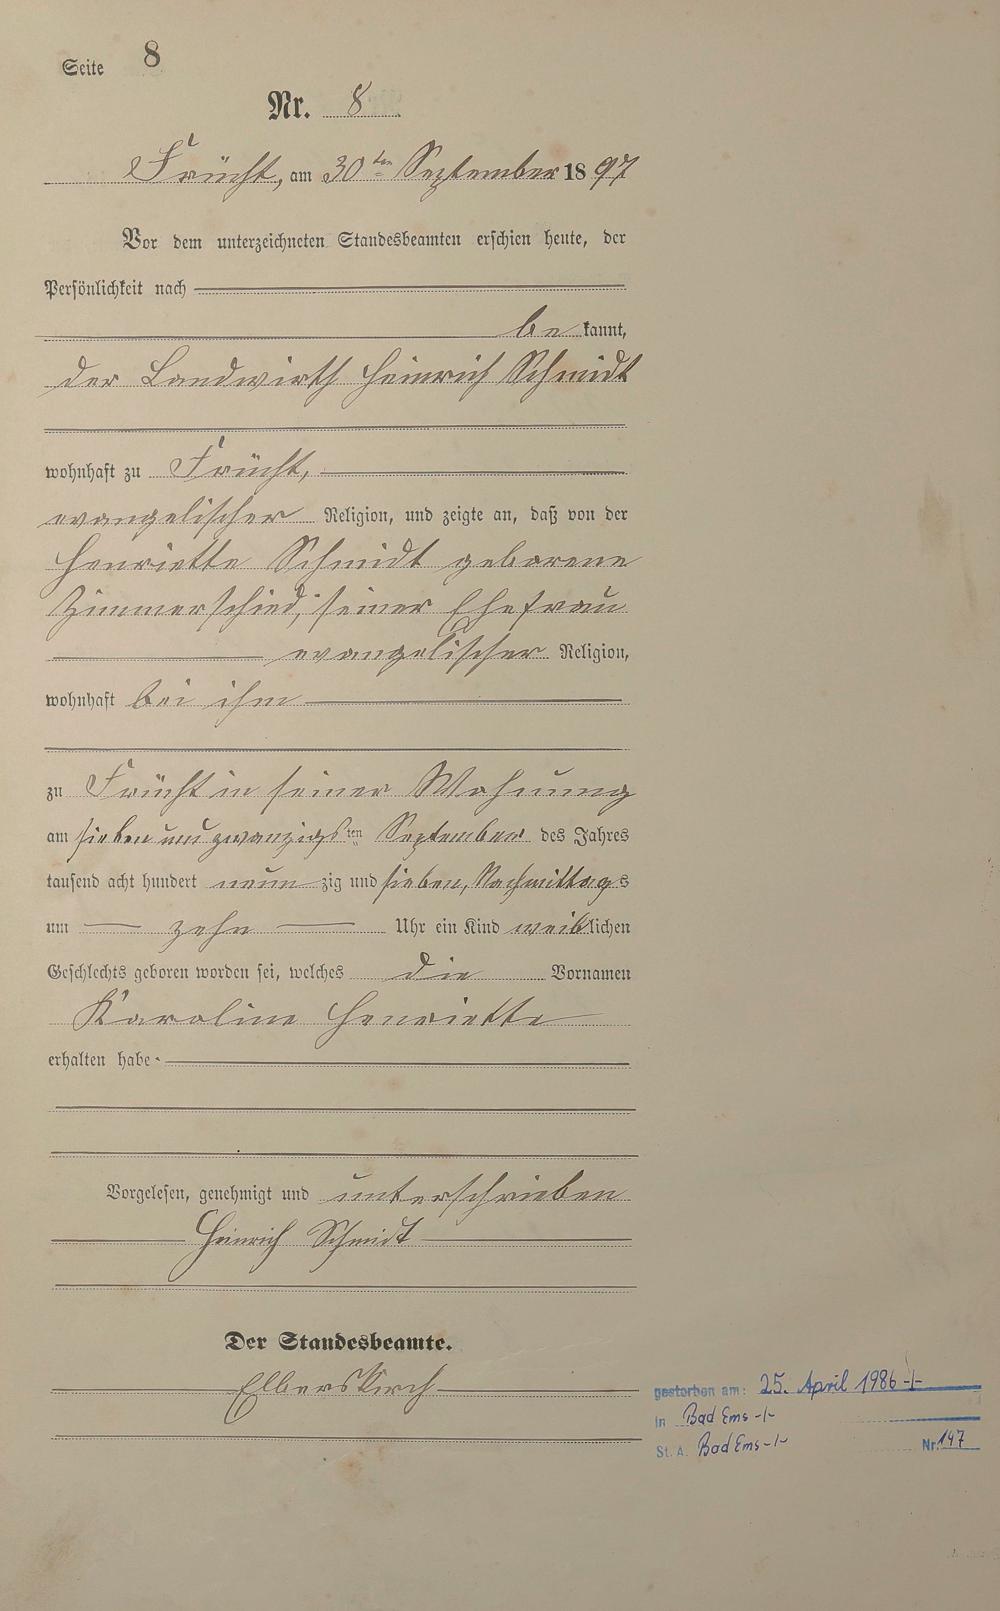 Seite 8
Nr. 8
Frücht, am 30ten September 1897
Vor dem unterzeichneten Standesbeamten erschien heute, der
Persönlichkeit nach
bekannt,
der Landwirth Heinrich Schmidt
wohnhaft zu Frücht,
evangelischer Religion, und zeigte an, daß von der
Henriette Schmidt geborene
Zimmerschied, seiner Ehefrau
evangelischer Religion,
wohnhaft bei ihm
zu Frücht in seiner Wohnung
am sieben und zwanzigsten September des Jahres
tausend acht hundert neunzig und sieben, Nachmittags
um zehn Uhr ein Kind weiblichen
Geschlechts geboren worden sei, welches die Vornamen
Karoline Henriette
erhalten habe.
Vorgelesen, genehmigt und unterschrieben
Heinrich Schmidt
Der Standesbeamte.
Elberskirch
gestorben am: 25. April 1986 -/-
in Bad Ems -/-
St. A. Bad Ems -/- Nr. 147